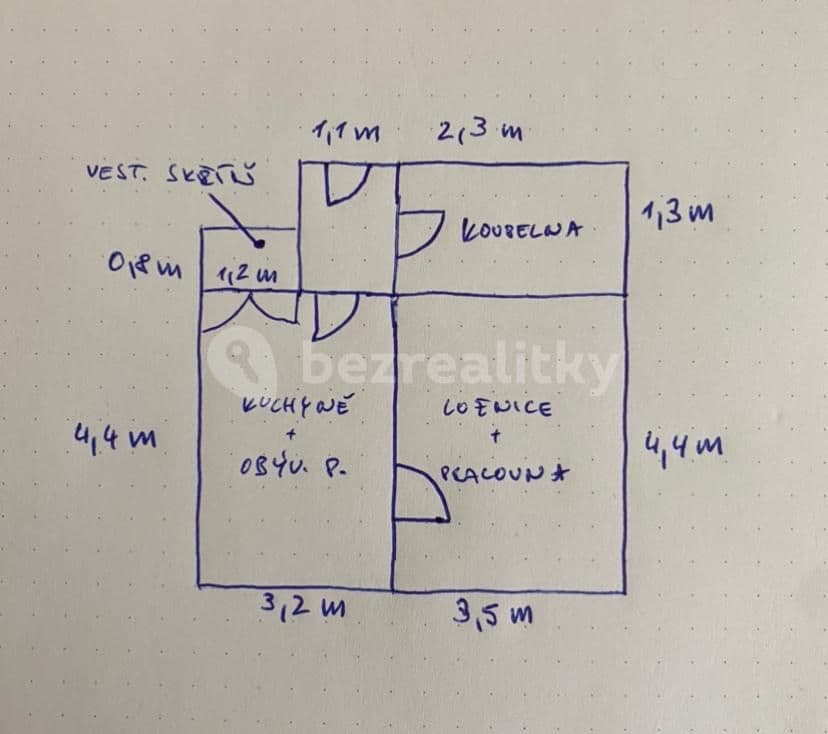 1,1 m
2,3 m
VEST. SKŘÍŇ
1,3 m
KOUPELNA
0,8 m
1,2 m
bezrealitky
KUCHYNĚ
+
OBÝV. P.
LOŽNICE
+
PRACOVNA
4,4 m
4,4 m
3,2 m
3,5 m